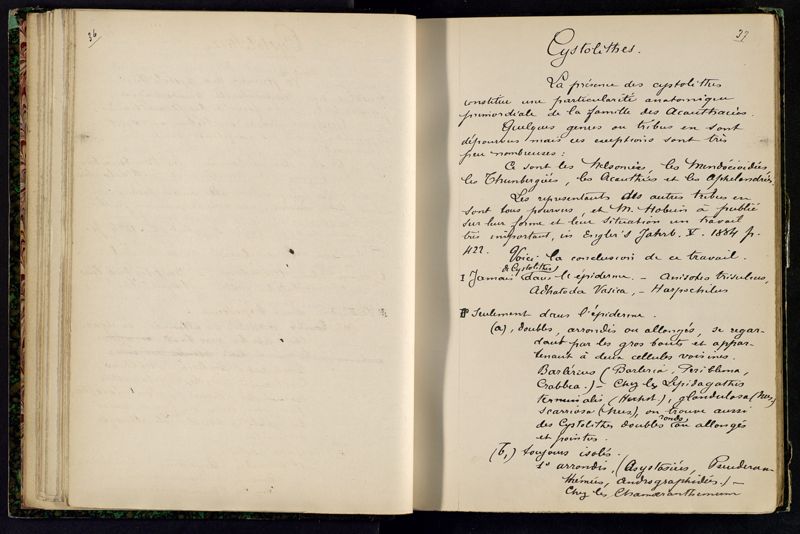 36
37
Cystolithes.
La présence des cystolithes
constitue une particularité anatomique
primordiale de la famille des Acanthacées.
Quelques genres ou tribus en sont
dépourvus mais ces exceptions sont très
peu nombreuses :
Ce sont les Nelsoniées, les Mendocioidées
les Thunbergiées, les Acanthées et les Aphelandrées.
Les représentants des autres tribus en
sont tous pourvus, et M. Hobein a publié
sur leur forme et leur situation un travail
très important, in Engler's Jahrb. V. 1884 p.
422. Voici la conclusion de ce travail.
de Cystolithes
I Jamais dans l'épiderme. — Anisotes trisulcus,
Adhatoda Vasica, — Harpochilus
II Seulement dans l'épiderme.
(a), doubles, arrondis ou allongés, se regar-
dant par les gros bouts et appar-
tenant à deux cellules voisines.
Barlériées (Barleria, Periblema,
Crabbea.) — Chez les Lepidagathis
terminalis, (Hochst.), glandulosa (Nees)
scariosa (Nees), on trouve aussi
des Cystolithes doubles ronds ou allongés
et pointus.
(b,) toujours isolés.
1° arrondis, (Asystasiées, Pseuderan-
thémées, Andrographidées.) —
Chez les Chamæranthemum